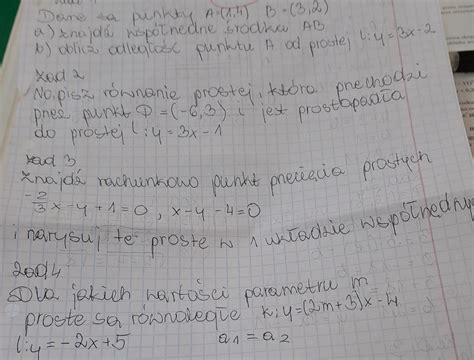 Dane są punkty A=(1,4) B=(3,2)
a) znajdź współrzędne środka AB
b) oblicz odległość punktu A od prostej l: y=3x-2
zad 2
Napisz równanie prostej, która przechodzi
przez punkt D=(-6,3) i jest prostopadła
do prostej l: y=3x-1
zad 3
znajdź rachunkowo punkt przecięcia prostych
-2/3x-y+1=0, x-y-4=0
i narysuj te proste w 1 układzie współrzędnych
zad 4
Dla jakich wartości parametru m
proste są równoległe k: y=(2m+3)x-4
l: y=-2x+5 a₁=a₂